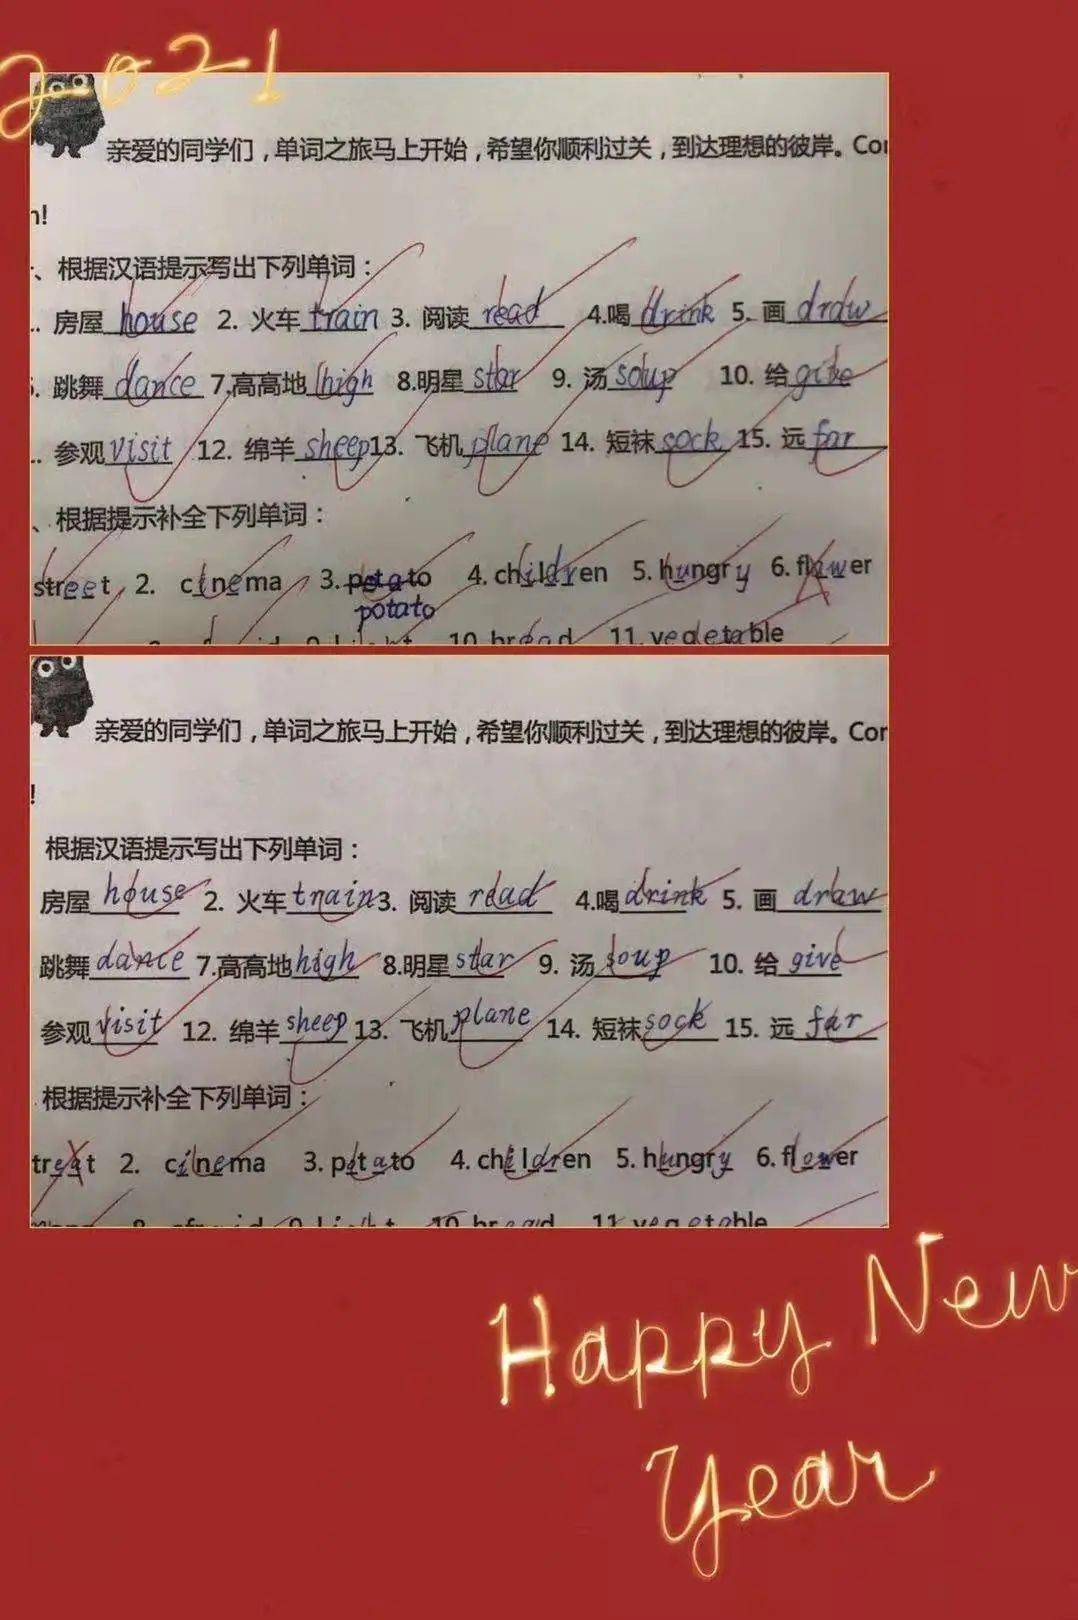 2021
亲爱的同学们，单词之旅马上开始，希望你顺利过关，到达理想的彼岸。Co
n!
、根据汉语提示写出下列单词：
. 房屋 house 2. 火车 train 3. 阅读 read 4.喝 drink 5. 画 draw
. 跳舞 dance 7.高高地 high 8.明星 star 9. 汤 soup 10. 给 give
. 参观 visit 12. 绵羊 sheep 13. 飞机 plane 14. 短袜 sock 15. 远 far
、根据提示补全下列单词：
street 2. cinema 3. potato 4. children 5. hungry 6. flawer
potato
10. bread 11. vegetable
亲爱的同学们，单词之旅马上开始，希望你顺利过关，到达理想的彼岸。Cor
!
根据汉语提示写出下列单词：
房屋 house 2. 火车 train 3. 阅读 read 4.喝 drink 5. 画 draw
跳舞 dance 7.高高地 high 8.明星 star 9. 汤 soup 10. 给 give
参观 visit 12. 绵羊 sheep 13. 飞机 plane 14. 短袜 sock 15. 远 far
根据提示补全下列单词：
treat 2. cinema 3. potato 4. children 5. hungry 6. flower
8. afraid 9. light 10. bread 11. vegetable
Happy New
Year